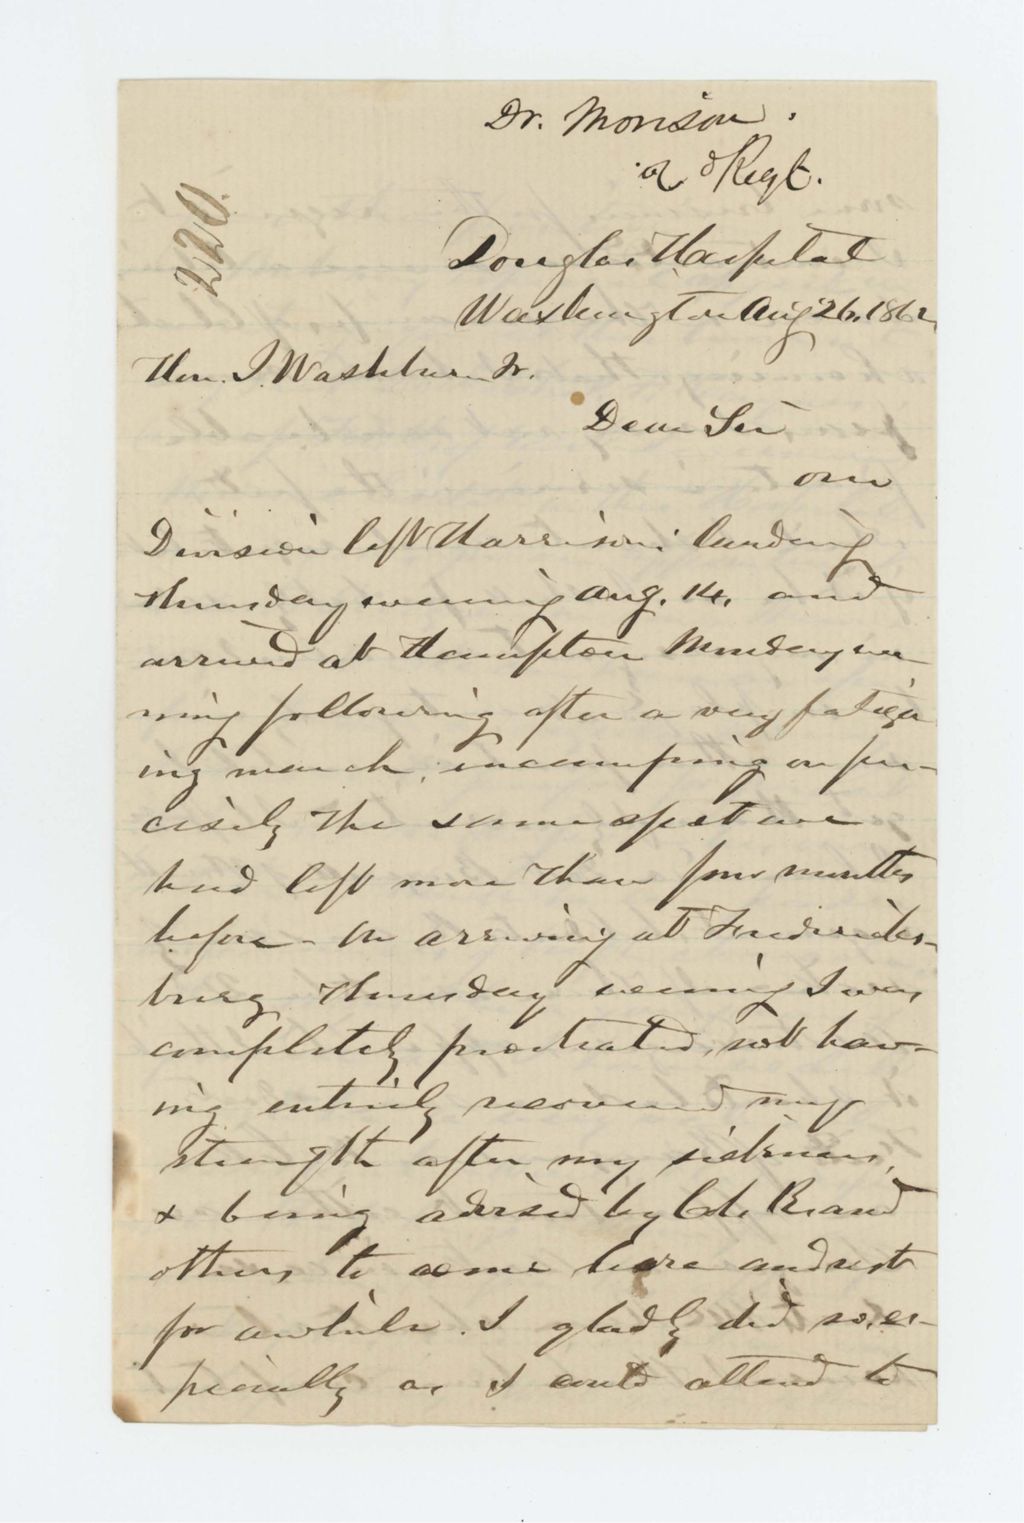 Dr. Morison.
2d Regt.
220.
Douglas Hospital
Washington Aug 26, 1862
Hon. I. Washburn Jr.
Dear Sir
Our
Division left Harrison's landing
Thursday evening Aug. 14, and
arrived at Hampton Monday eve
ning following after a very fatigu
ing march, incamping on pre-
cisely the same spot we
had left more than four months
before - On arriving at Fredericks-
burg Thursday evening I was
completely prostrated, not hav-
ing entirely recovered my
strength after my sickness,
& being advised by Col. R. and
others to come here and rest
for awhile. I gladly did so, es-
pecially as I could attend to